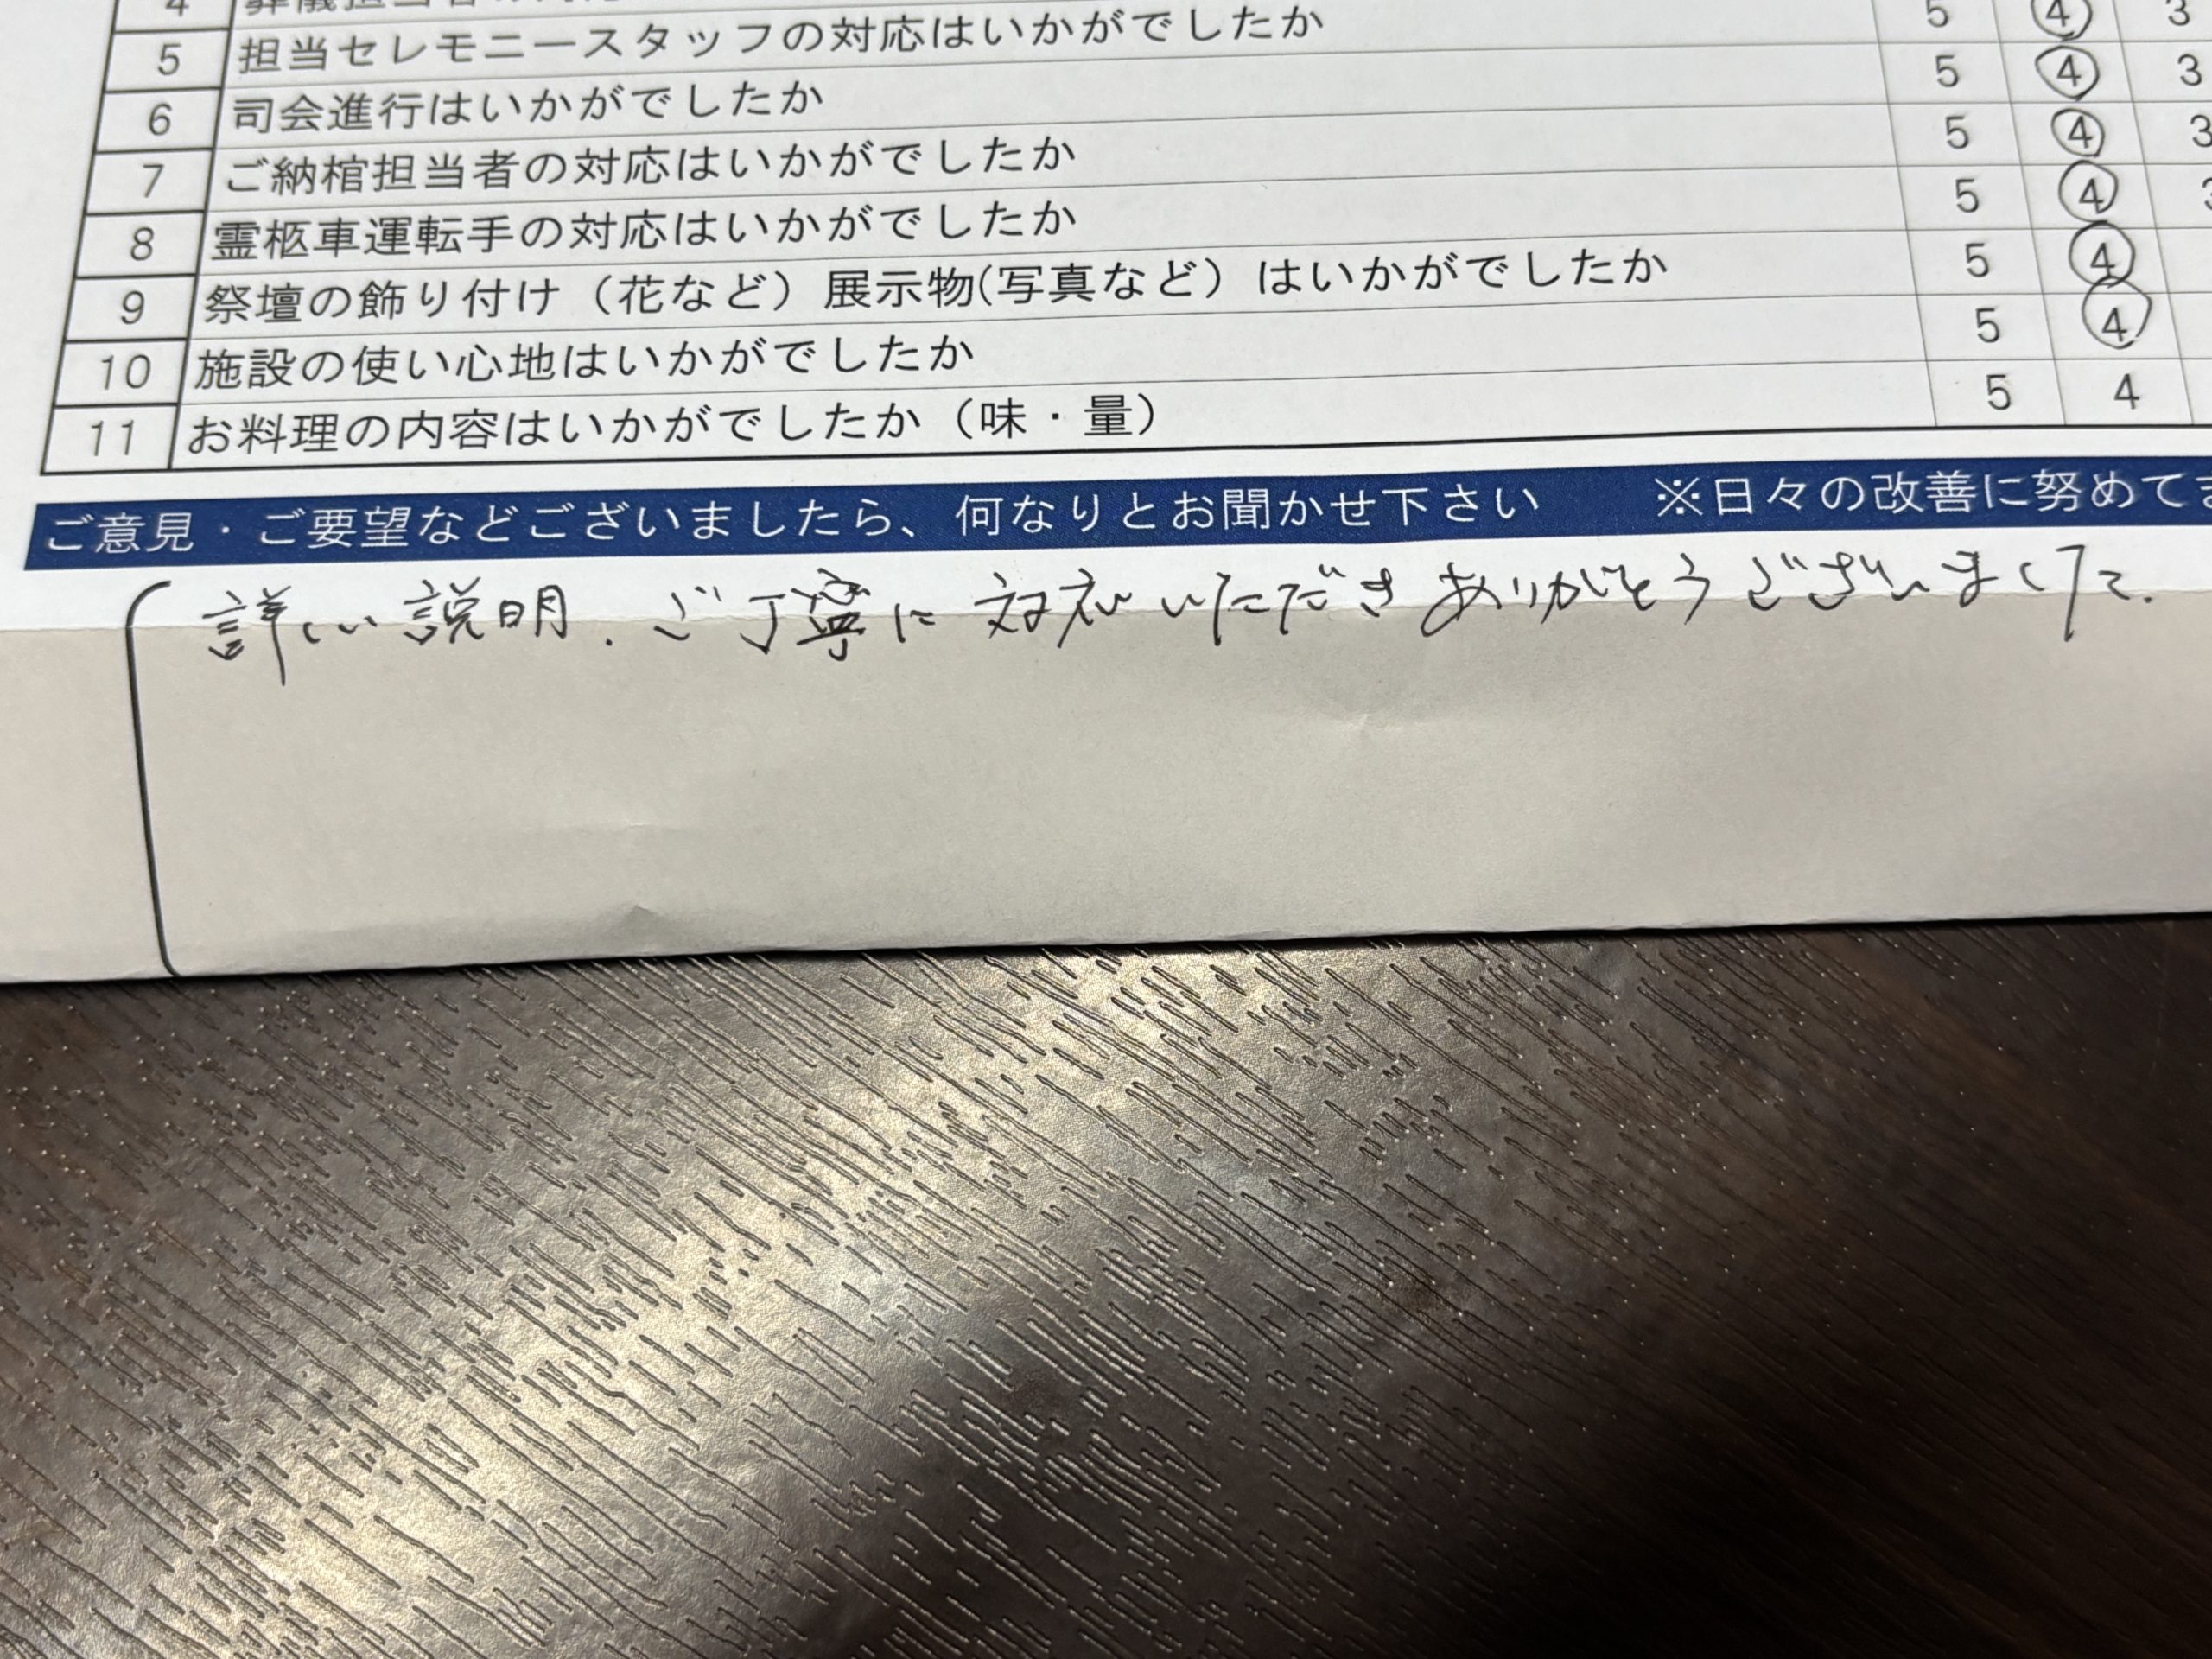 4 葬儀担当者の対応
5 担当セレモニースタッフの対応はいかがでしたか 5 4 3
6 司会進行はいかがでしたか 5 4 3
7 ご納棺担当者の対応はいかがでしたか 5 4 3
8 霊柩車運転手の対応はいかがでしたか 5 4 3
9 祭壇の飾り付け（花など）展示物(写真など）はいかがでしたか 5 4
10 施設の使い心地はいかがでしたか 5 4
11 お料理の内容はいかがでしたか（味・量） 5 4
ご意見・ご要望などございましたら、何なりとお聞かせ下さい ※日々の改善に努めてま
詳しい説明、ご丁寧に対応いただきありがとうございました。